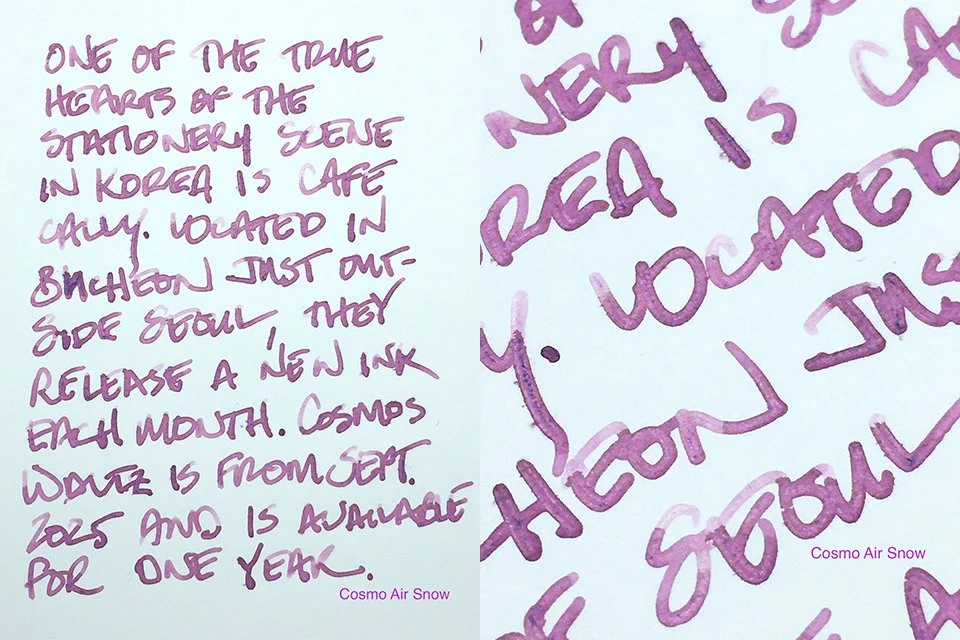 ONE OF THE TRUE
HEARTS OF THE
STATIONERY SCENE
IN KOREA IS CAFE
CALLY. LOCATED IN
BUCHEON JUST OUT-
SIDE SEOUL, THEY
RELEASE A NEW INK
EACH MONTH. COSMOS
WALTZ IS FROM SEPT.
2025 AND IS AVAILABLE
FOR ONE YEAR.
Cosmo Air Snow
NERY S
REA IS CA
Y. LOCATED
HEON JUS
SEOUL
Cosmo Air Snow